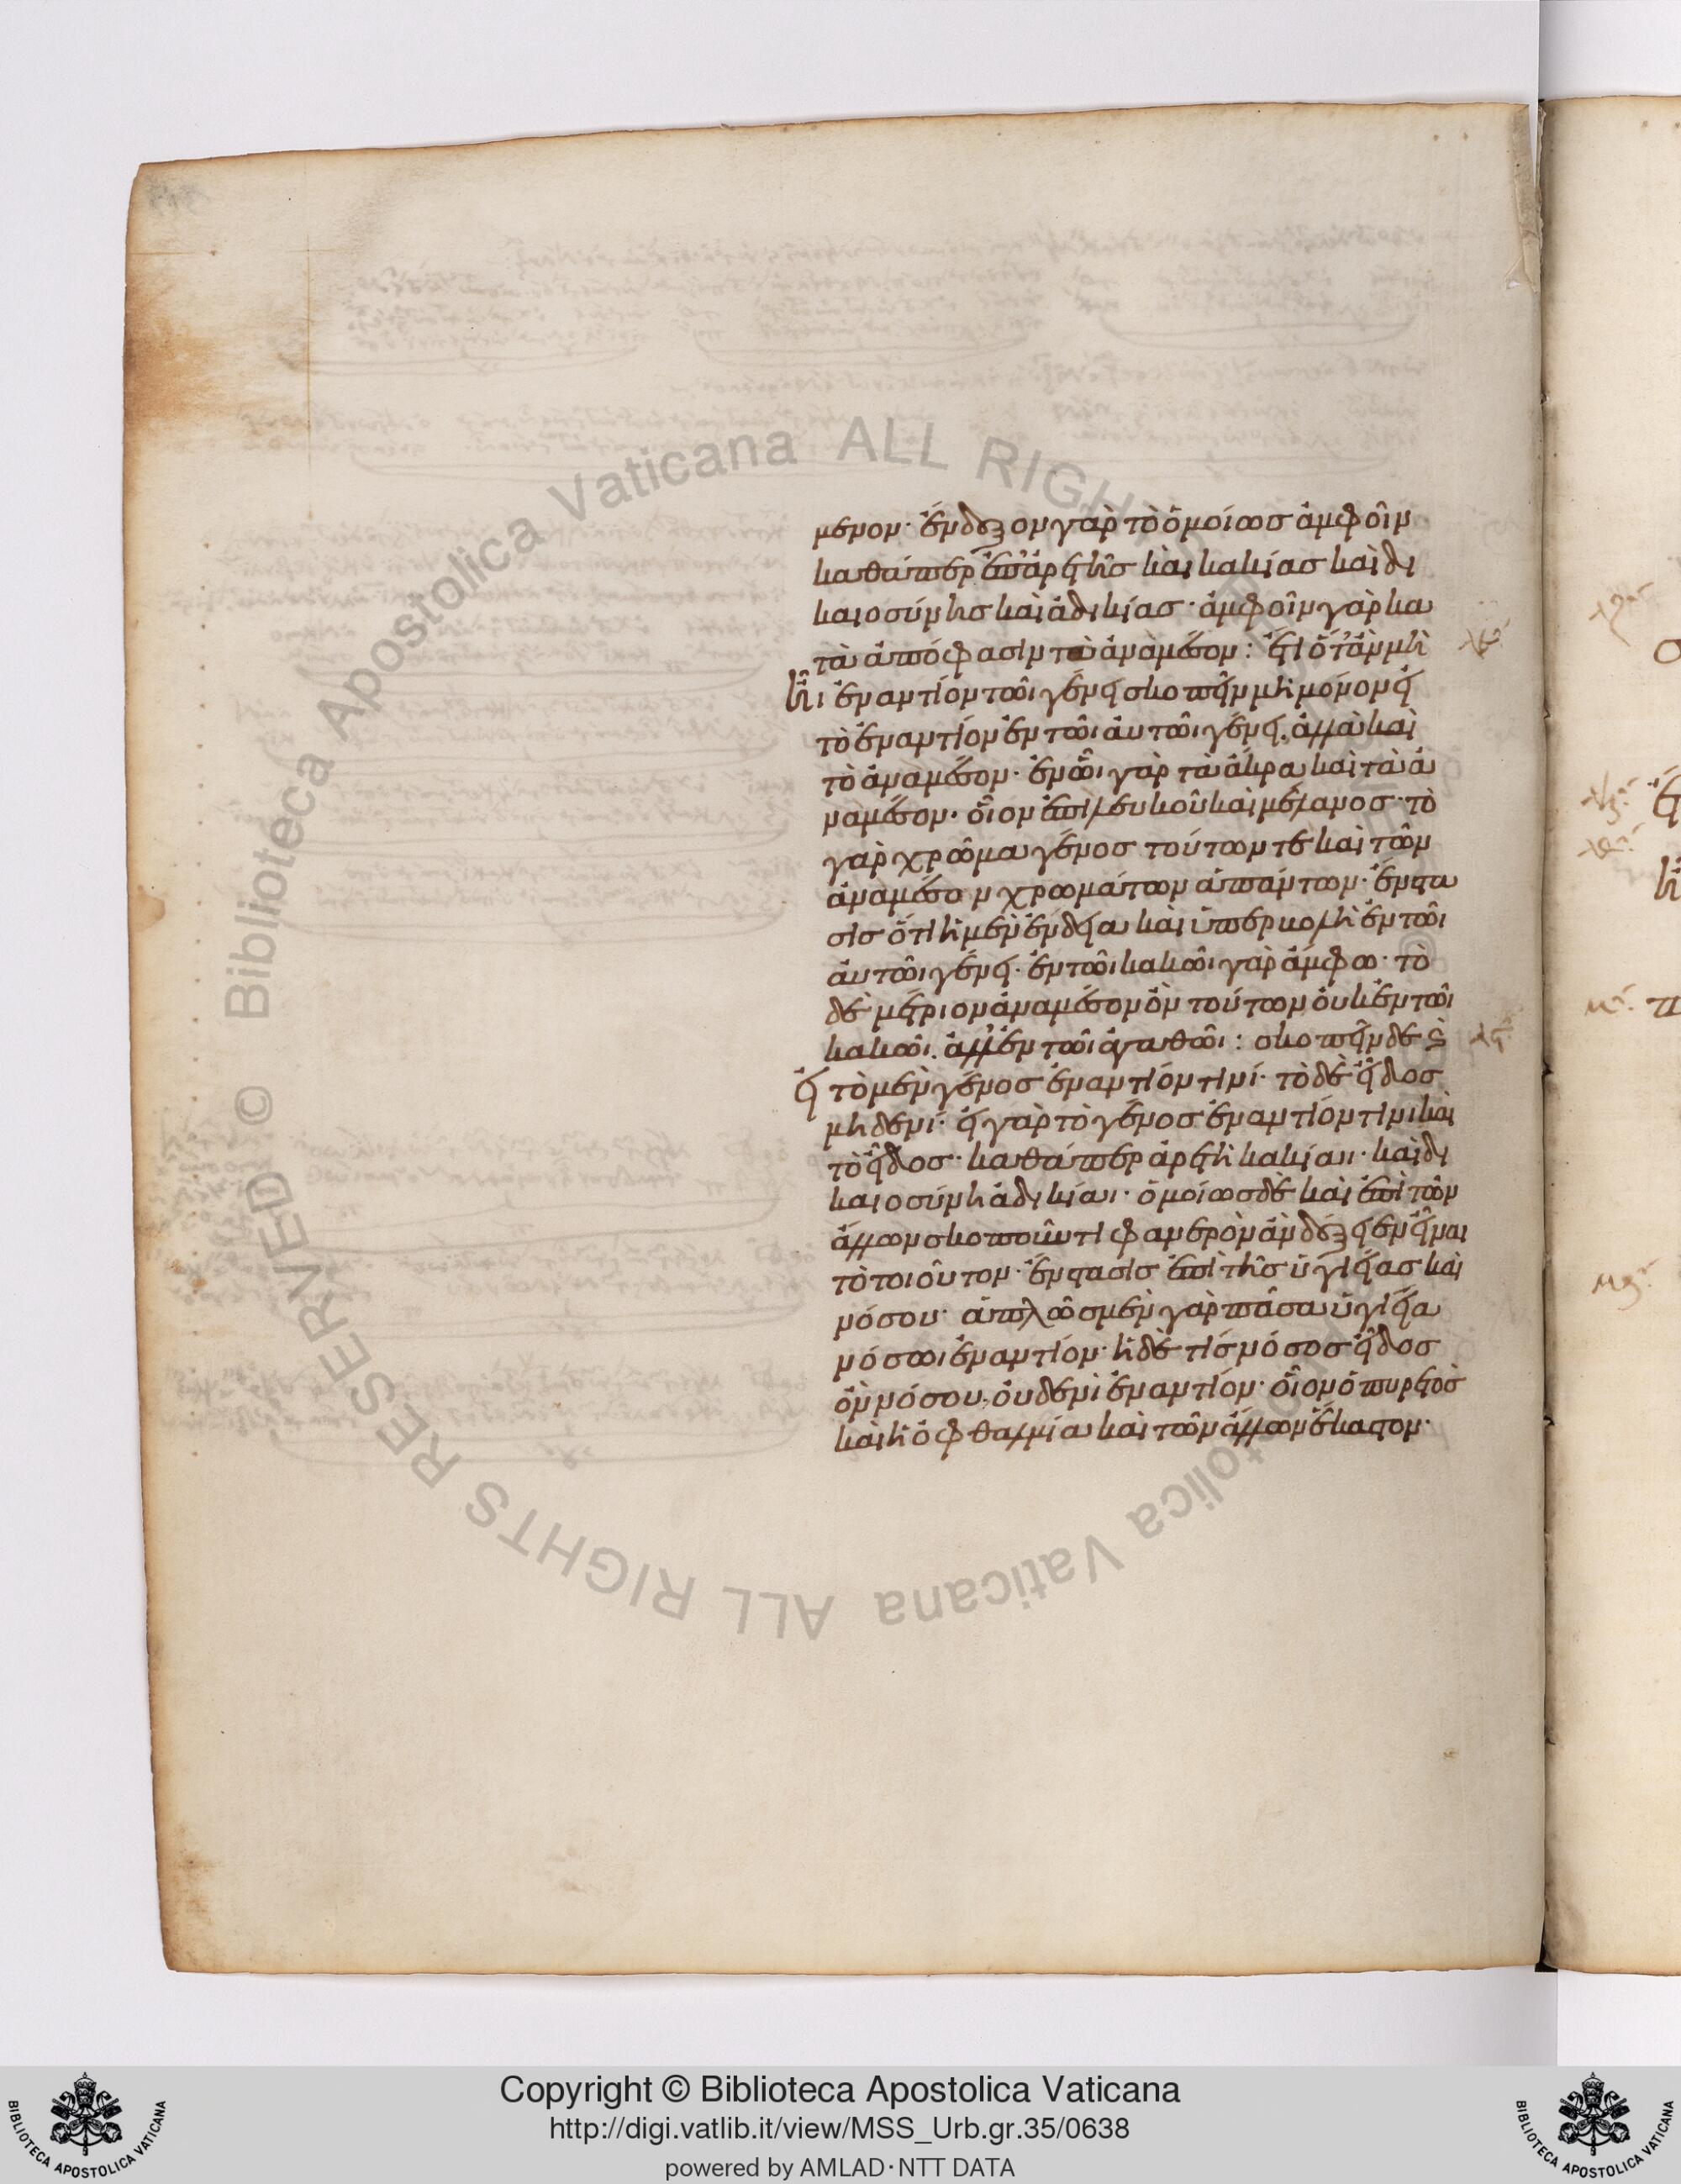 μενον· ἔνδοξον γὰρ τὸ ὁμοίως ἀμφοῖν
καθάπερ ἐπ ἀρετῆς καὶ κακίας καὶ δι
καιοσύνης καὶ ἀδικίας· ἀμφοῖν γὰρ κα
τὰ ἀπόφασιν τὸ ἀνὰ μέσον: ἔτι ὅτ ἂν μὴ
ἦι ἐναντίον τῶι γένει σκοπεῖν μὴ μόνον εἰ
τὸ ἐναντίον ἐν τῶι αὐτῶι γένει, ἀλλὰ καὶ
τὸ ἀνὰ μέσον· ἐν ὧι γὰρ τὰ ἄκρα καὶ τὰ ἀ
νὰ μέσον· οἷον ἐπὶ λευκοῦ καὶ μέλανος· τὸ
γὰρ χρῶμα γένος τούτων τε καὶ τῶν
ἀνὰ μέσον χρωμάτων ἁπάντων· ἔνστα
σις ὅτι ἡ μὲν ἔνδεια καὶ ὑπερβολὴ ἐν τῶι
αὐτῶι γένει· ἐν τῶι κακῶι γὰρ ἄμφω· τὸ
δὲ μέτριον ἀνὰ μέσον ὂν τούτων οὐκ ἐν τῶι
κακῶι, ἀλλ ἐν τῶι ἀγαθῶι: σκοπεῖν δὲ καὶ
εἰ τὸ μὲν γένος ἐναντίον τινί· τὸ δὲ εἶδος
μηδενί· εἰ γὰρ τὸ γένος ἐναντίον τινι καὶ
τὸ εἶδος· καθάπερ ἀρετὴ κακίαι· καὶ δι
καιοσύνη ἀδικίαι· ὁμοίως δὲ καὶ ἐπὶ τῶν
ἄλλων σκοποῦντι φανερὸν ἂν δόξειεν εἶναι
τὸ τοιοῦτον· ἔνστασις ἐπὶ τῆς ὑγιείας καὶ
νόσου· ἁπλῶς μὲν γὰρ πᾶσα ὑγίεια
νόσωι ἐναντίον· ἡ δέ τις νόσος εἶδος
ὂν νόσου, οὐδενὶ ἐναντίον· οἷον ὁ πυρετὸς
καὶ ἡ ὀφθαλμία καὶ τῶν ἄλλων ἕκαστον·
© Biblioteca Apostolica Vaticana ALL RIGHTS RESERVED
Copyright © Biblioteca Apostolica Vaticana
http://digi.vatlib.it/view/MSS_Urb.gr.35/0638
powered by AMLAD·NTT DATA
BIBLIOTECA APOSTOLICA VATICANA
BIBLIOTECA APOSTOLICA VATICANA